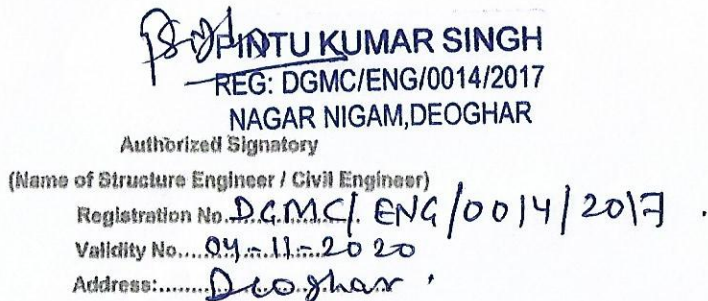 PINTU KUMAR SINGH
REG: DGMC/ENG/0014/2017
NAGAR NIGAM,DEOGHAR
Authorized Signatory
(Name of Structure Engineer / Civil Engineer)
Registration No. DGMC/. ENG/0014/2017 .
Validity No....04-11-2020
Address:........Deoghar.